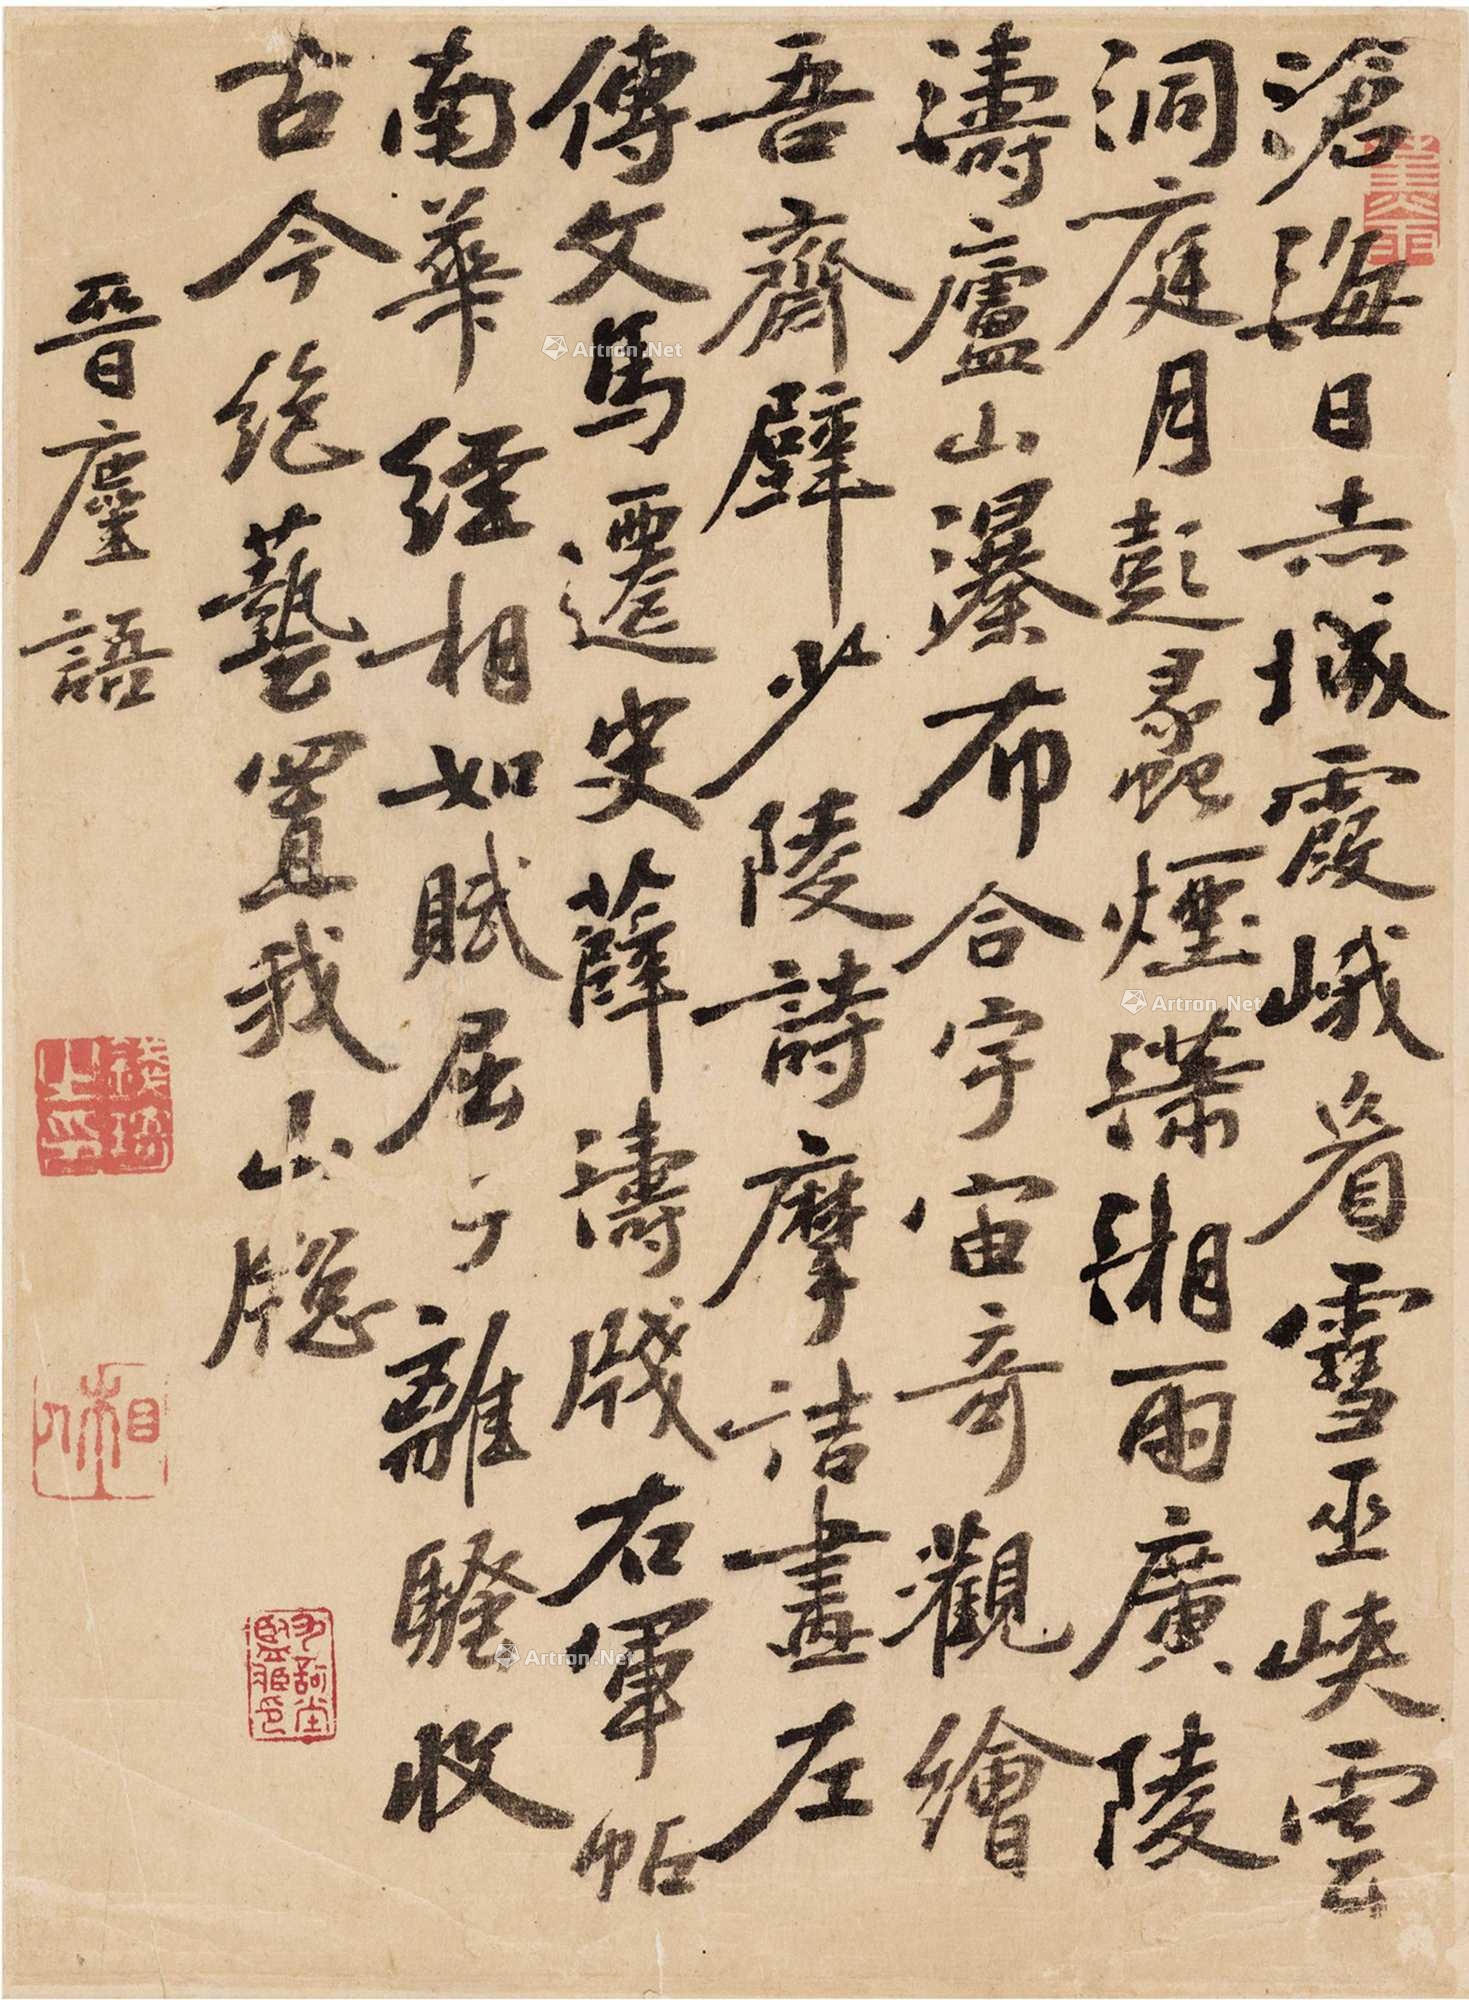 滄海日赤城霞峨眉雪巫峽雲
洞庭月彭蠡煙瀟湘雨廣陵
濤廬山瀑布合宇宙奇觀繪
吾齋壁少陵詩摩詰畫左
傳文馬遷史薛濤牋右軍帖
南華經相如賦屈子離騷收
古今絕藝置我山牕
晉麈語
Artron.Net
Artron.Net
Artron.Net